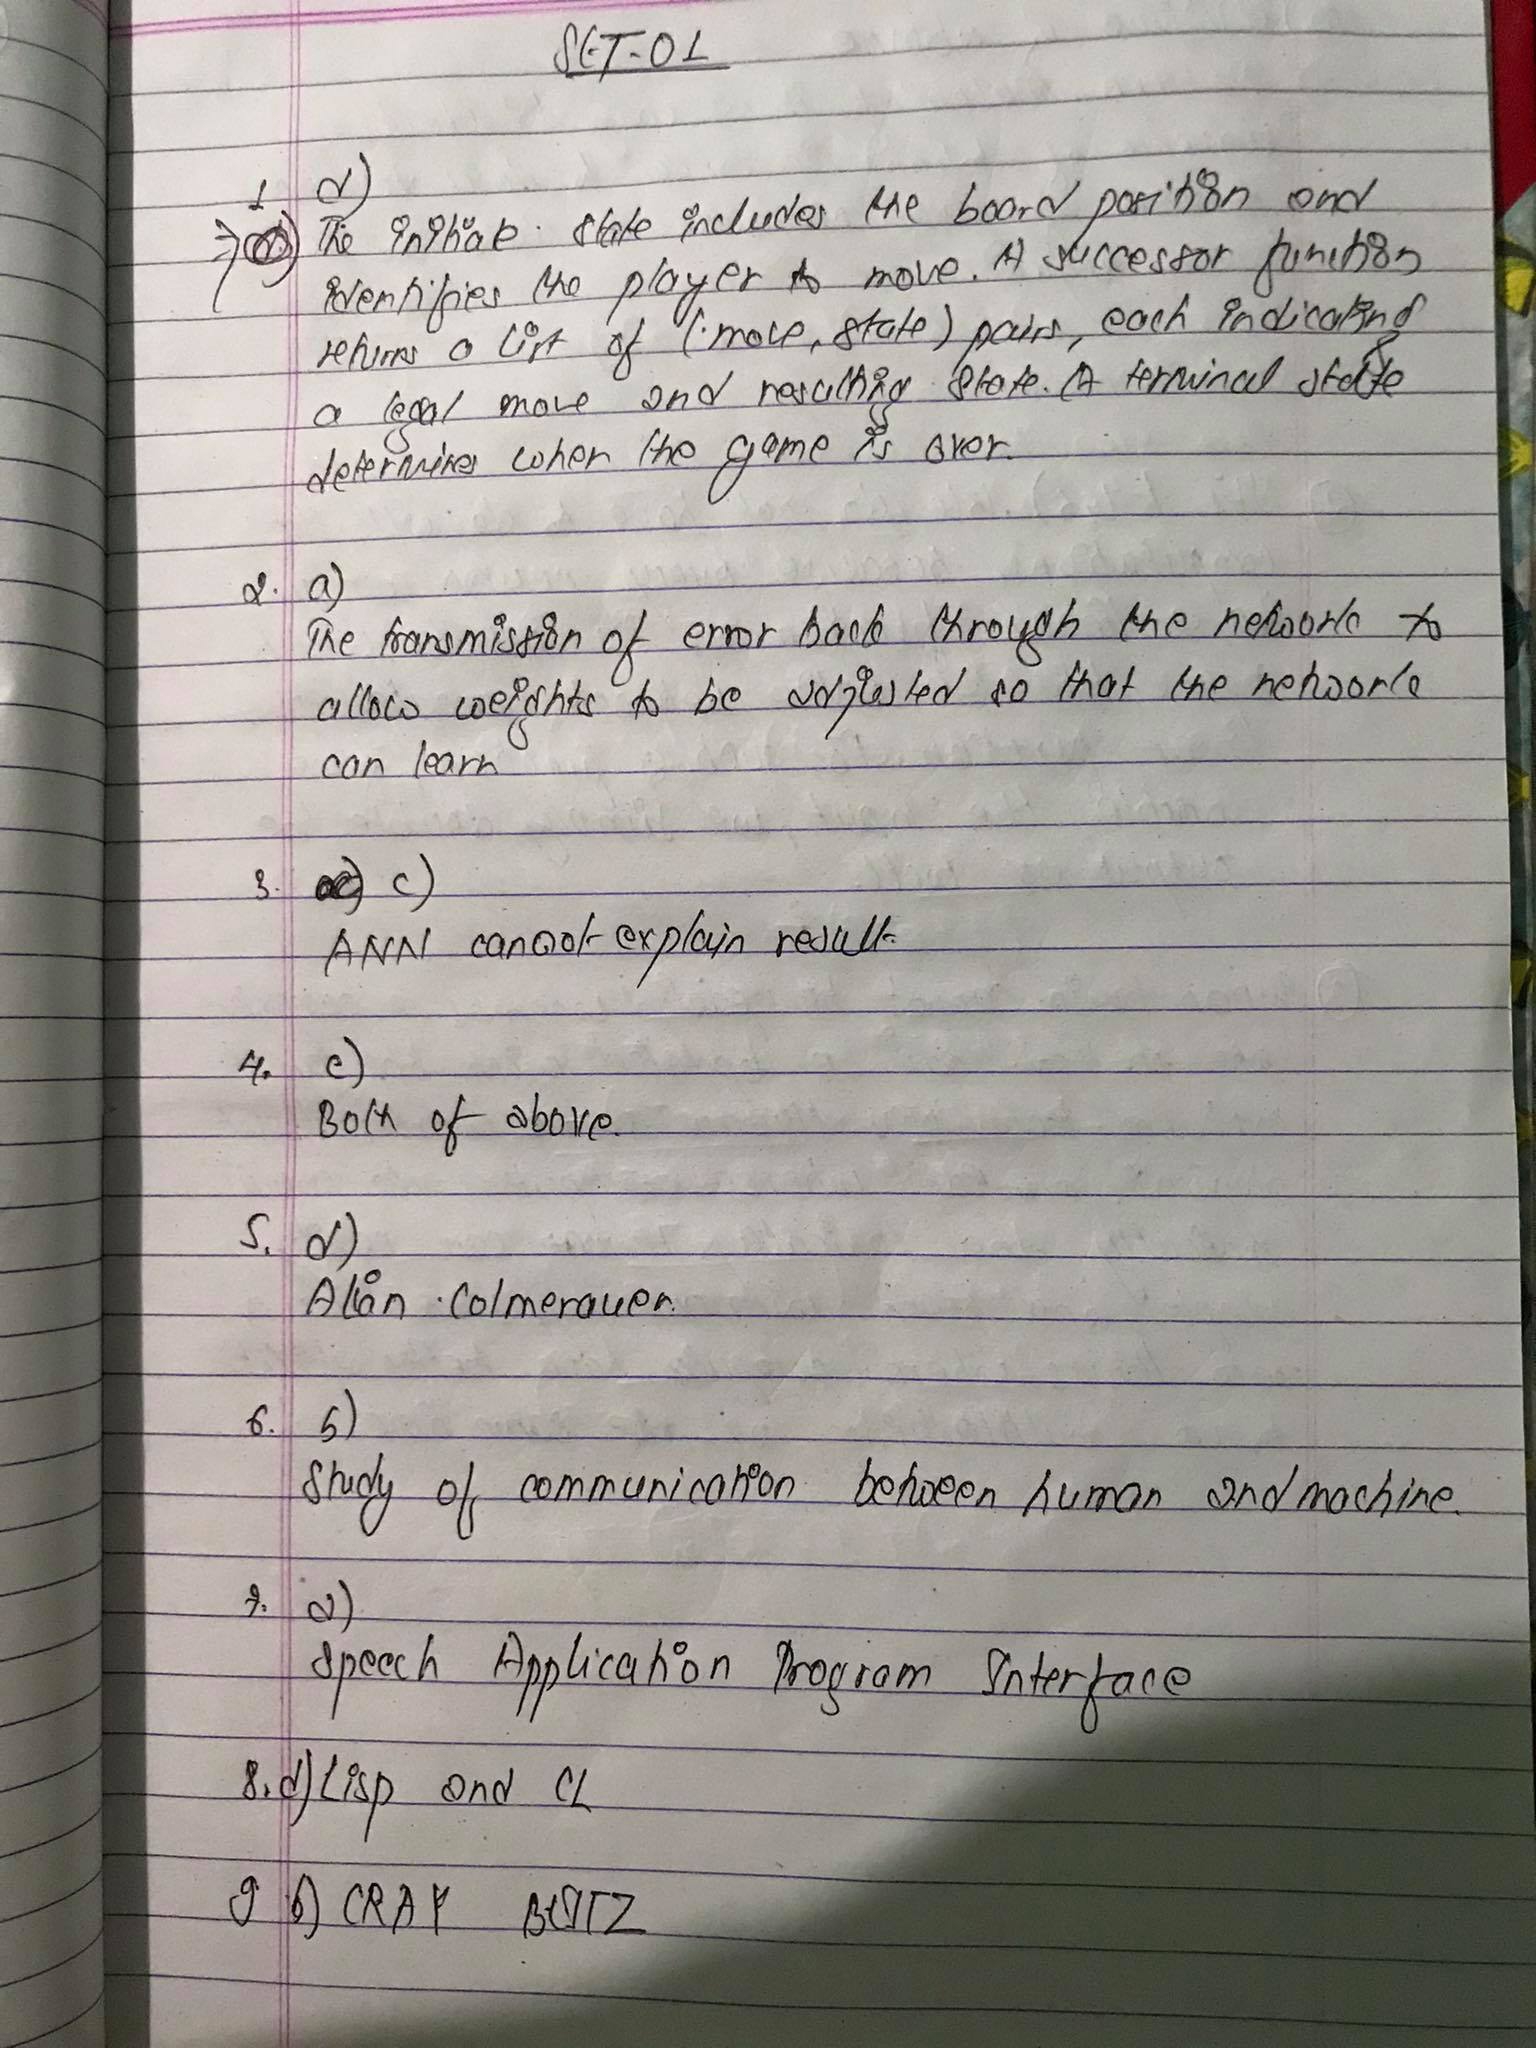 SET-01
1 d)
The initial state includes the board position and
identifies the player to move. A successor function
returns a list of (move, state) pairs, each indicating
a legal move and resulting state. A terminal state
determines when the game is over.
2. a)
The transmission of error back through the network to
allow weights to be adjusted so that the network
can learn
3. c)
ANN cannot explain result.
4. c)
Both of above.
5. d)
Alian Colmerauer.
6. b)
Study of communication between human and machine.
7. a)
Speech Application Program Interface
8. d) Lisp and CL
9 b) CRAY BLITZ